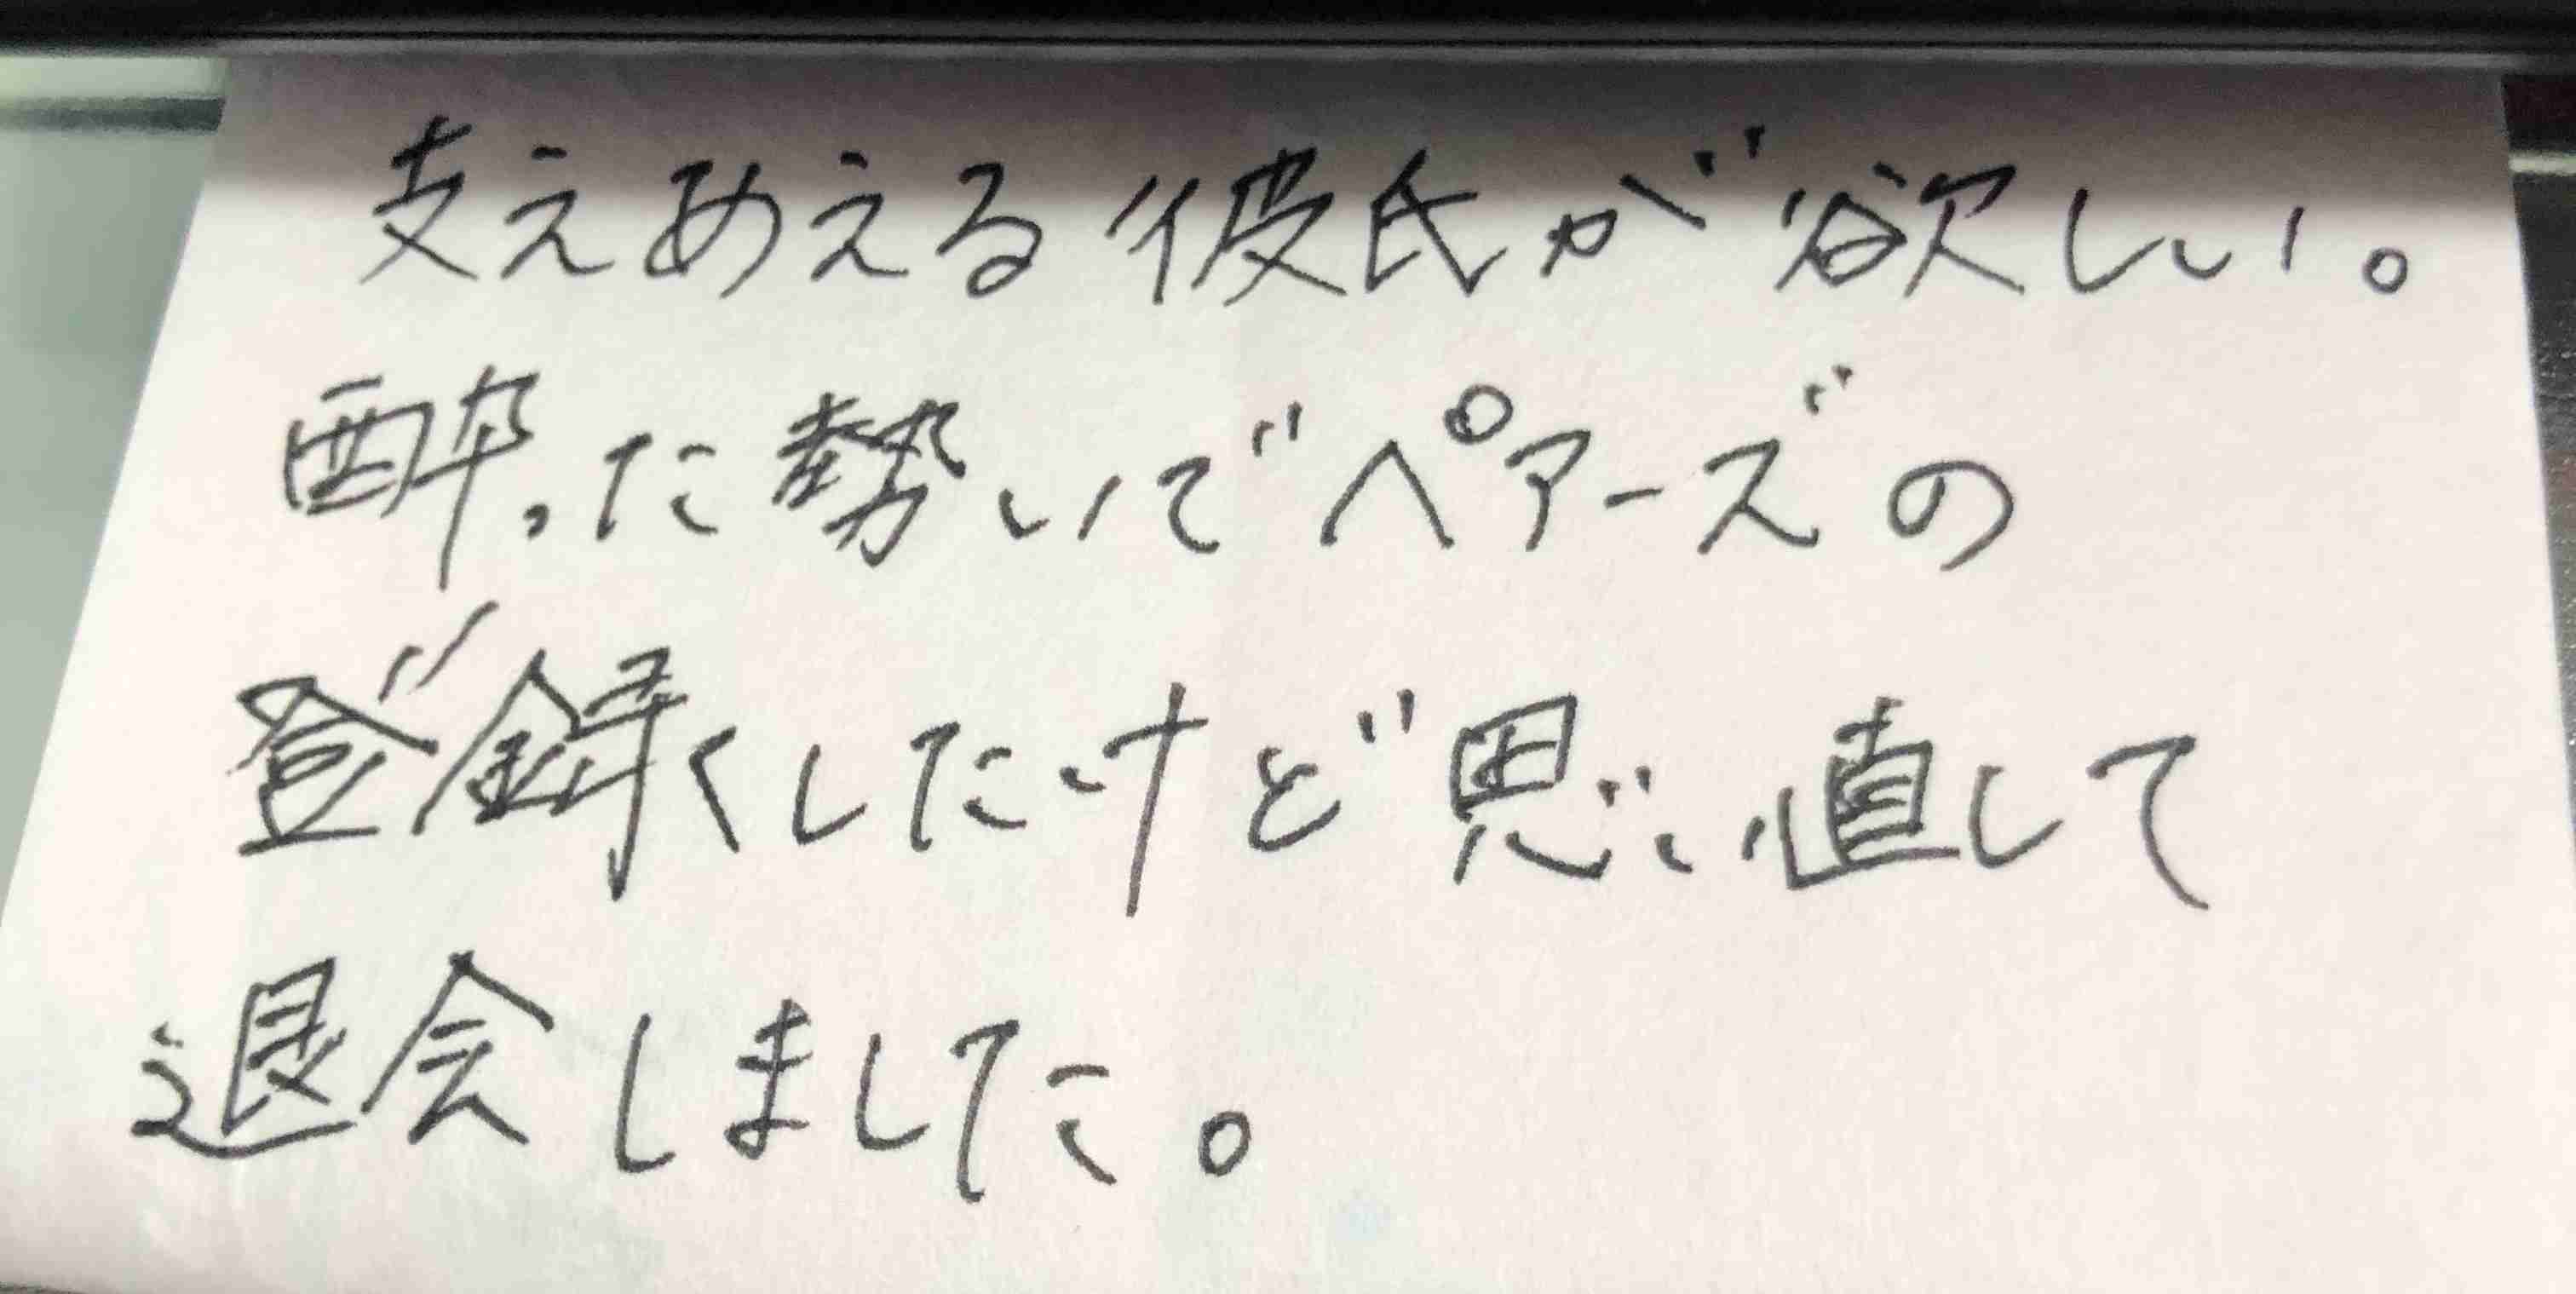 支えあえる彼氏が欲しい。
酔った勢いでペアーズの
登録したけど思い直して
退会しました。